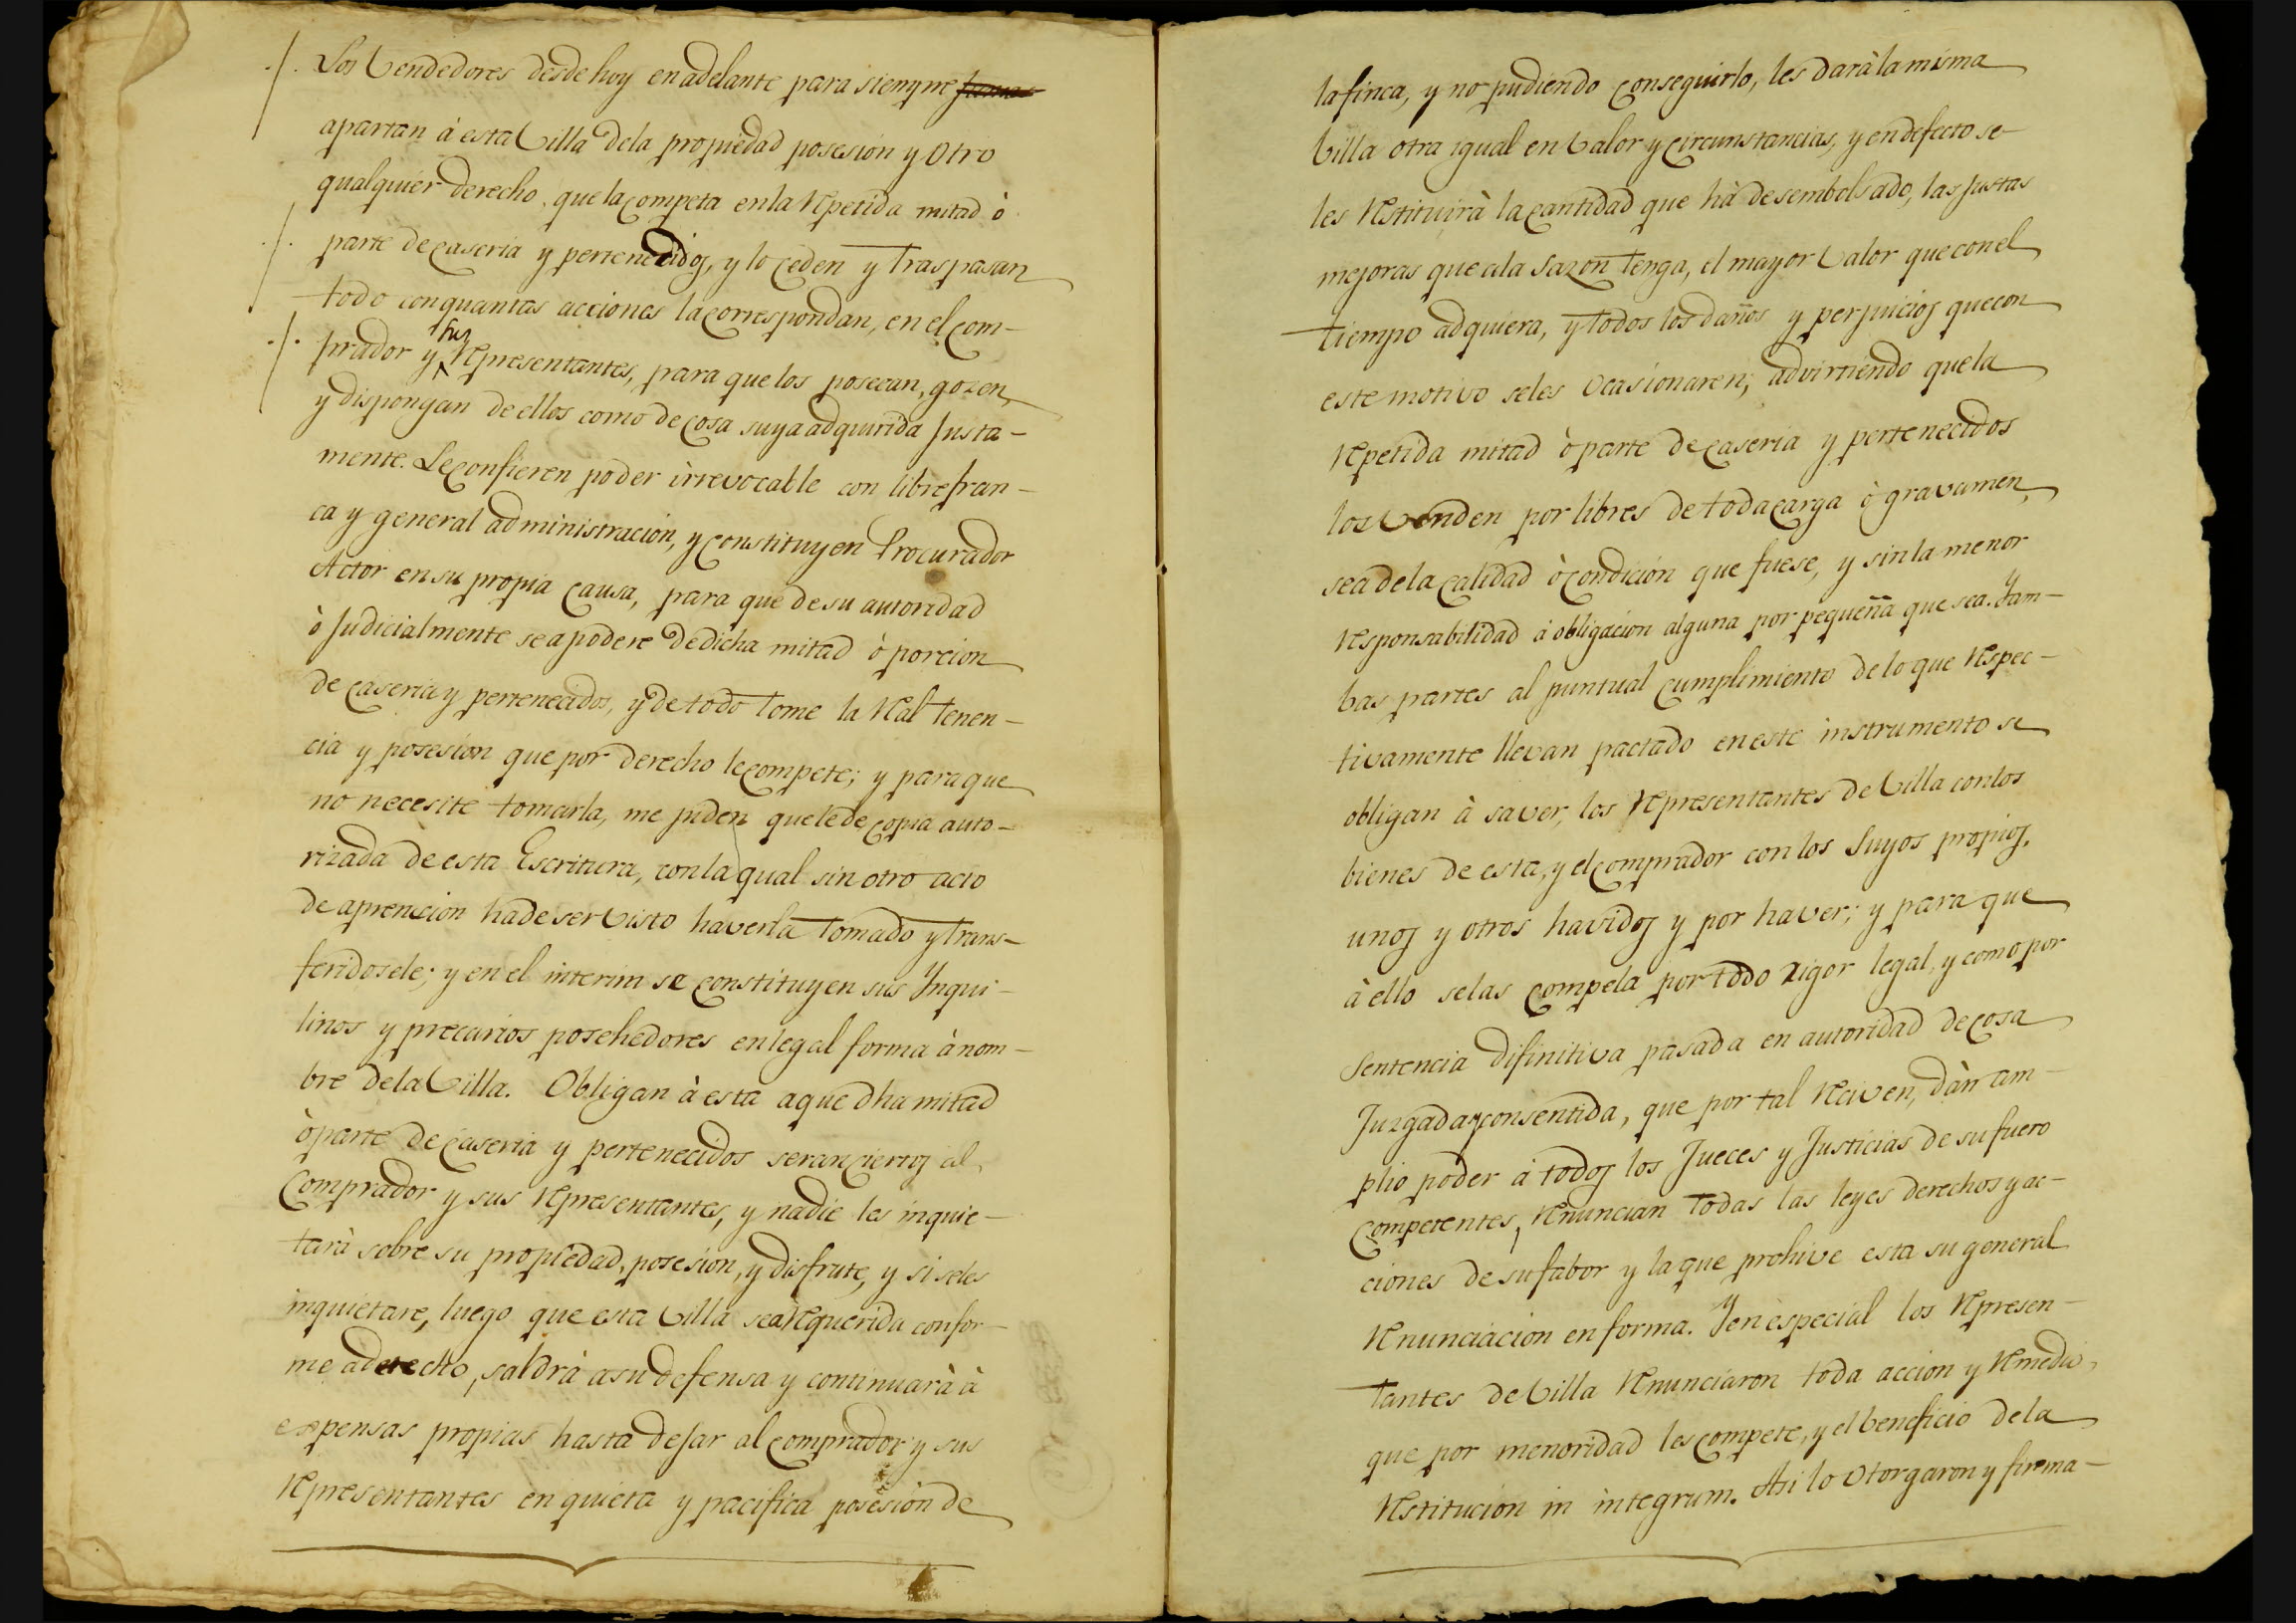 Los Vendedores desde hoy en adelante para siempre
apartan à esta Villa dela propiedad posesion y otro
qualquier derecho que la competa en la Repetida mitad ò
parte de caseria y pertenecidos, y lo ceden y traspasan
todo con quantas acciones la correspondan, en el com-
prador y sus Representantes, para que los posecan, gozen,
y dispongan de ellos como de cosa suya adquirida Justa-
mente. Le confieren poder irrevocable con libre fran-
ca y general administracion, y constituyen Procurador
Actor en su propia causa, para que de su autoridad
ò Judicialmente se apodere de dicha mitad ò porcion
de caseria y pertenecidos, y de todo tome la Real tenen-
cia y posesion que por derecho le compete; y para que
no necesite tomarla, me piden que le de copia auto-
rizada de esta Escritura, con la qual sin otro acto
de aprension ha de ser visto haverla tomado y trans-
feridosele; y en el interim se constituyen sus Ynqui-
linos y precarios posehedores en legal forma à nom-
bre dela Villa. Obligan à esta a que dha mitad
ò parte de caseria y pertenecidos seran ciertos al
Comprador y sus Representantes, y nadie les inquie-
tarà sobre su propiedad, posesion, y disfrute, y si seles
inquietare, luego que esta Villa sea Requerida confor-
me a derecho, saldrà a su defensa y continuarà à
expensas propias hasta dejar al comprador y sus
Representantes en quieta y pacifica posesion de
la finca, y no pudiendo conseguirlo, les darà la misma
Villa otra igual en valor y circunstancias, y en defecto se
les Restituirà la cantidad que hà desembolsado, las Justas
mejoras que ala sazon tenga, el mayor valor que con el
tiempo adquiera, y todos los daños y perjuicios que con
este motivo seles ocasionaren; advirtiendo que la
Repetida mitad ò parte de caseria y pertenecidos
los venden por libres de toda carga ò gravamen,
sea dela calidad ò condicion que fuese, y sin la menor
Responsabilidad à obligacion alguna por pequeña que sea. Yam-
bas partes al puntual cumplimiento de lo que Respec-
tivamente llevan pactado en este instrumento se
obligan à saver, los Representantes de Villa con los
bienes de esta, y el comprador con los suyos propios,
unos y otros havidos y por haver; y para que
à ello se las compela por todo rigor legal, y como por
Sentencia difinitiva pasada en autoridad de cosa
Juzgada y consentida, que por tal Reciven, dàn am-
plio poder à todos los Jueces y Justicias de su fuero
competentes, Renuncian todas las leyes derechos y ac-
ciones de su fabor y la que prohive esta su general
Renunciacion en forma. Y en especial los Represen-
tantes de Villa Renunciaron toda accion y Remedio,
que por menoridad les compete, y el beneficio dela
Restitucion in integrum. Asi lo otorgaron y firma-